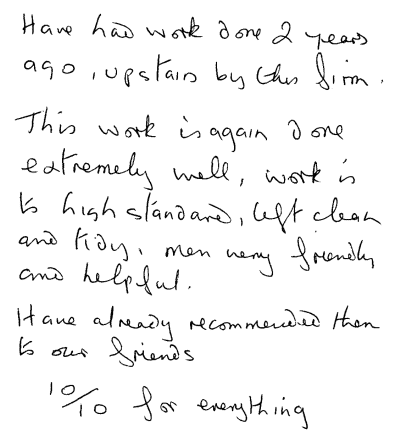 Have had work done 2 years
ago, upstairs by this firm.
This work is again done
extremely well, work is
to high standard, left clean
and tidy, men very friendly
and helpful.
Have already recommended them
to our friends
10/10 for everything